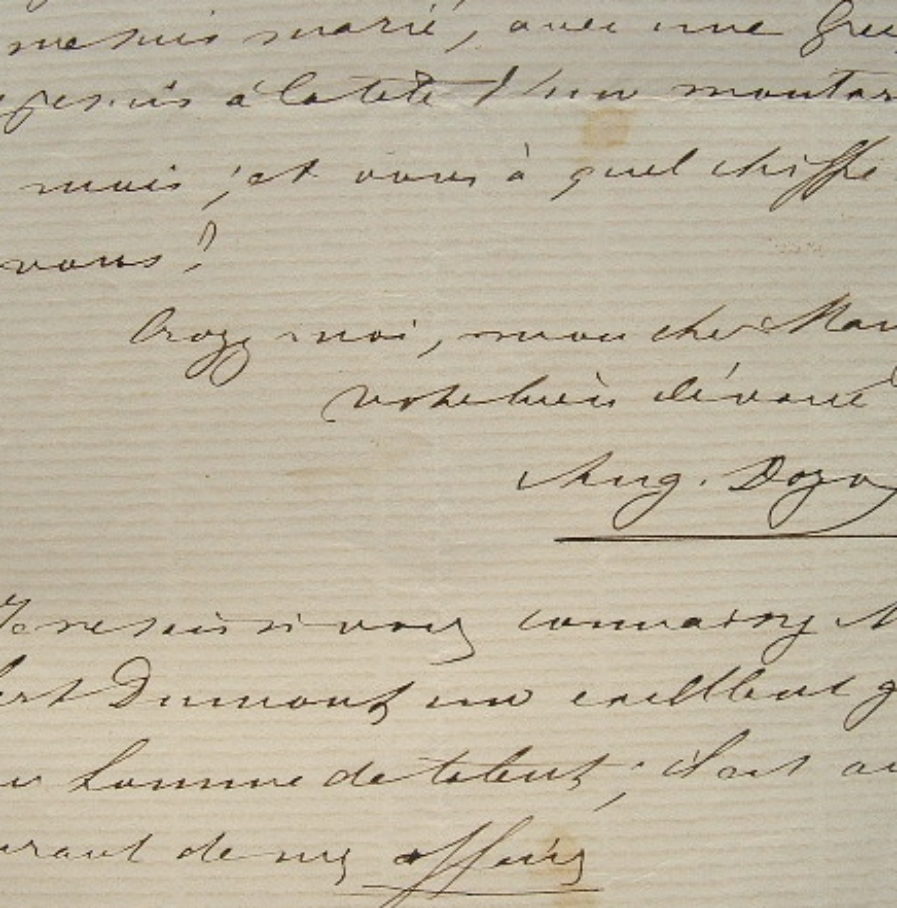 me suis marié, avec une Grec
je suis à la tête d'un moutar
mois ; et vous à quel chiffre
vous ?
Croyez moi, mon cher Mon
votre bien dévoué
Aug. Dozon
Je ne sais si vous connaissez M
bert Dumont un excellent g
un homme de talent ; il est au
urant de mes affaires